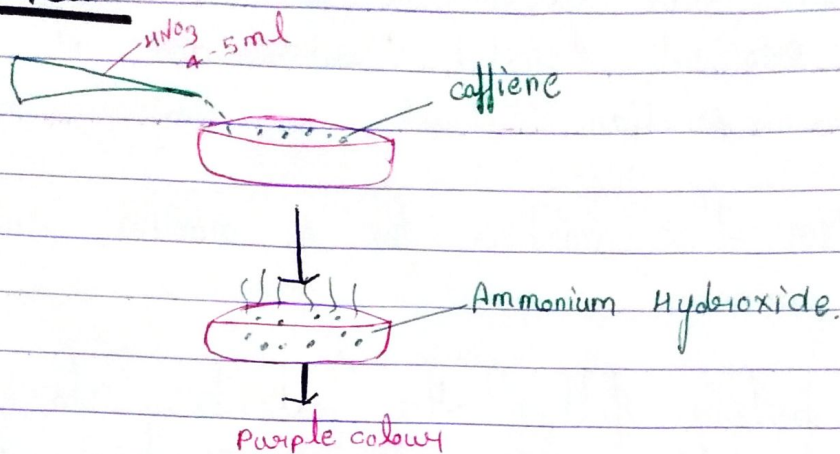 HNO3
4-5ml
caffiene
Ammonium Hydroxide.
Purple colour